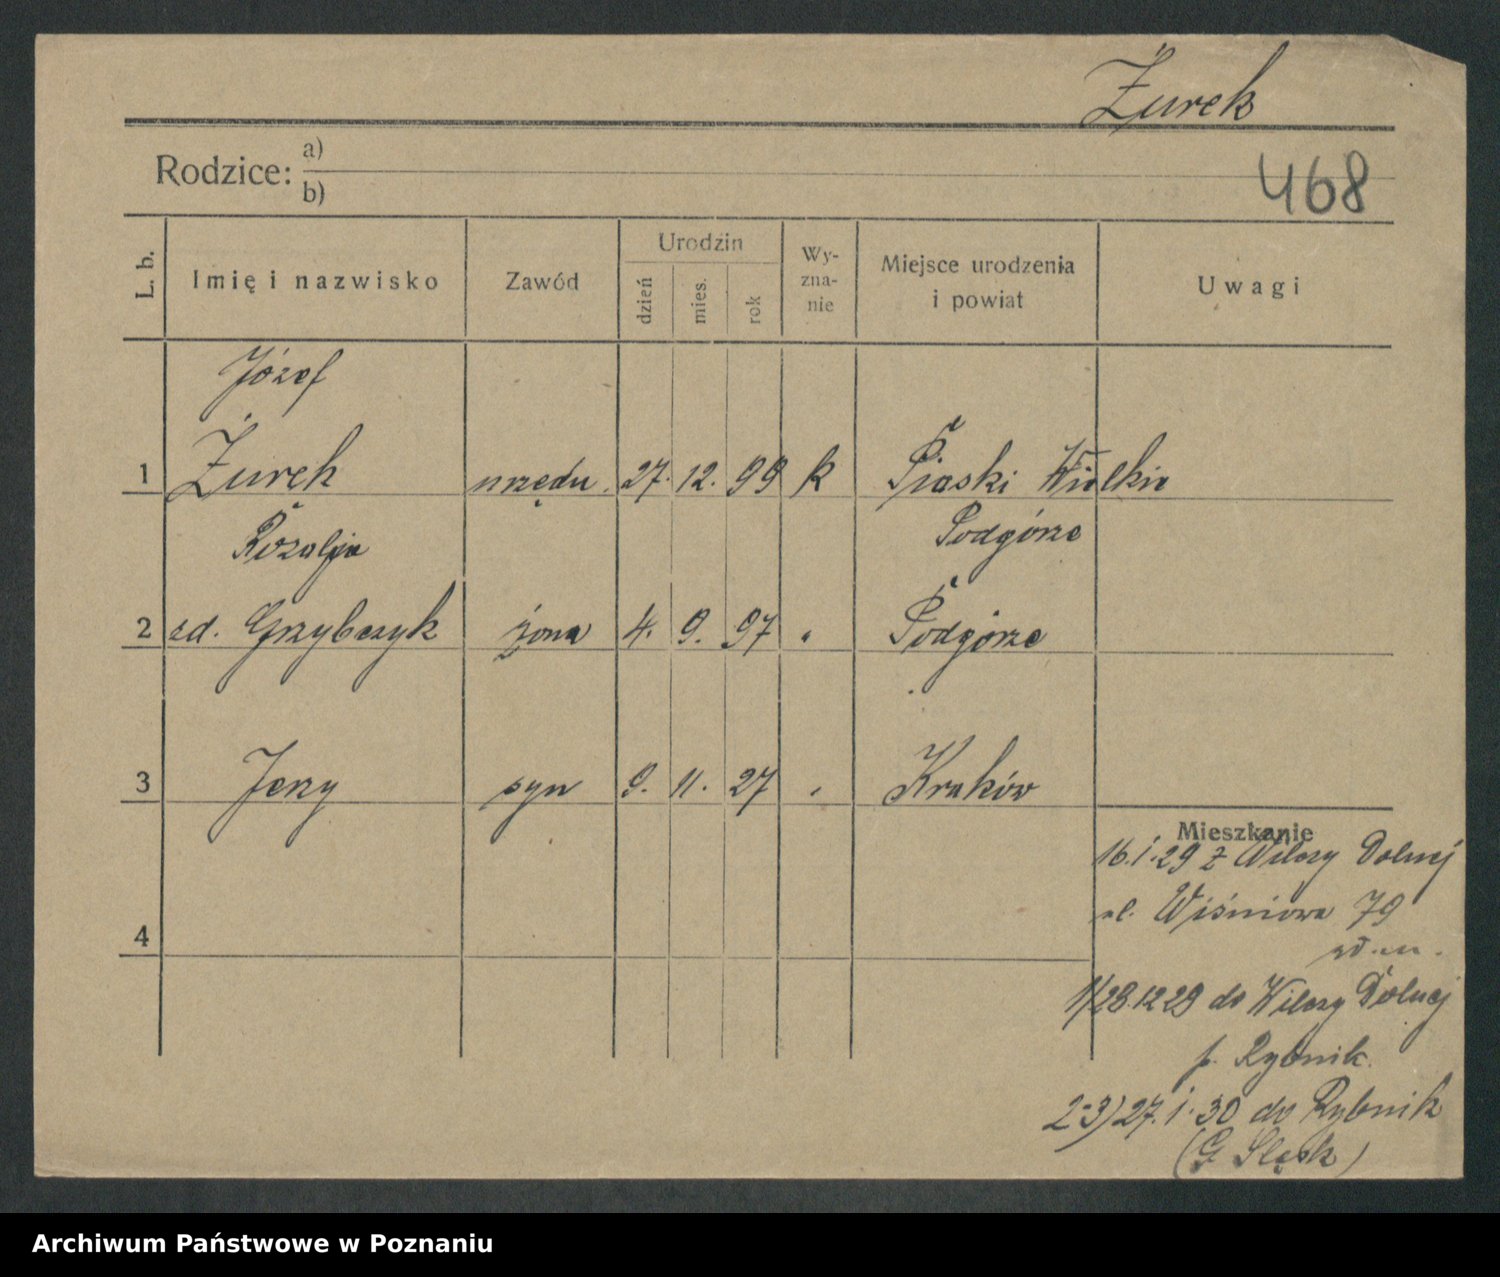 Żurek
Rodzice: a)
b)
468
L. b. Imię i nazwisko Zawód Urodzin dzień mies. rok Wy-zna-nie Miejsce urodzenia i powiat Uwagi
Józef
1 Żurek urzędn. 27. 12. 99 k Piaski Wielkie
Rozalja Podgórze
2 zd. Grzybczyk żona 4. 9. 97 " Podgórze
3 Jerzy syn 9. 11. 27 " Kraków
Mieszkanie
16.i.29 z Wilczy Dolnej
ul. Wiśniowa 79
4
1/28.12 29 do Wilczy Dolnej
p. Rybnik.
2-3) 27.i.30 do Rybnik
(G Śląsk)
Archiwum Państwowe w Poznaniu